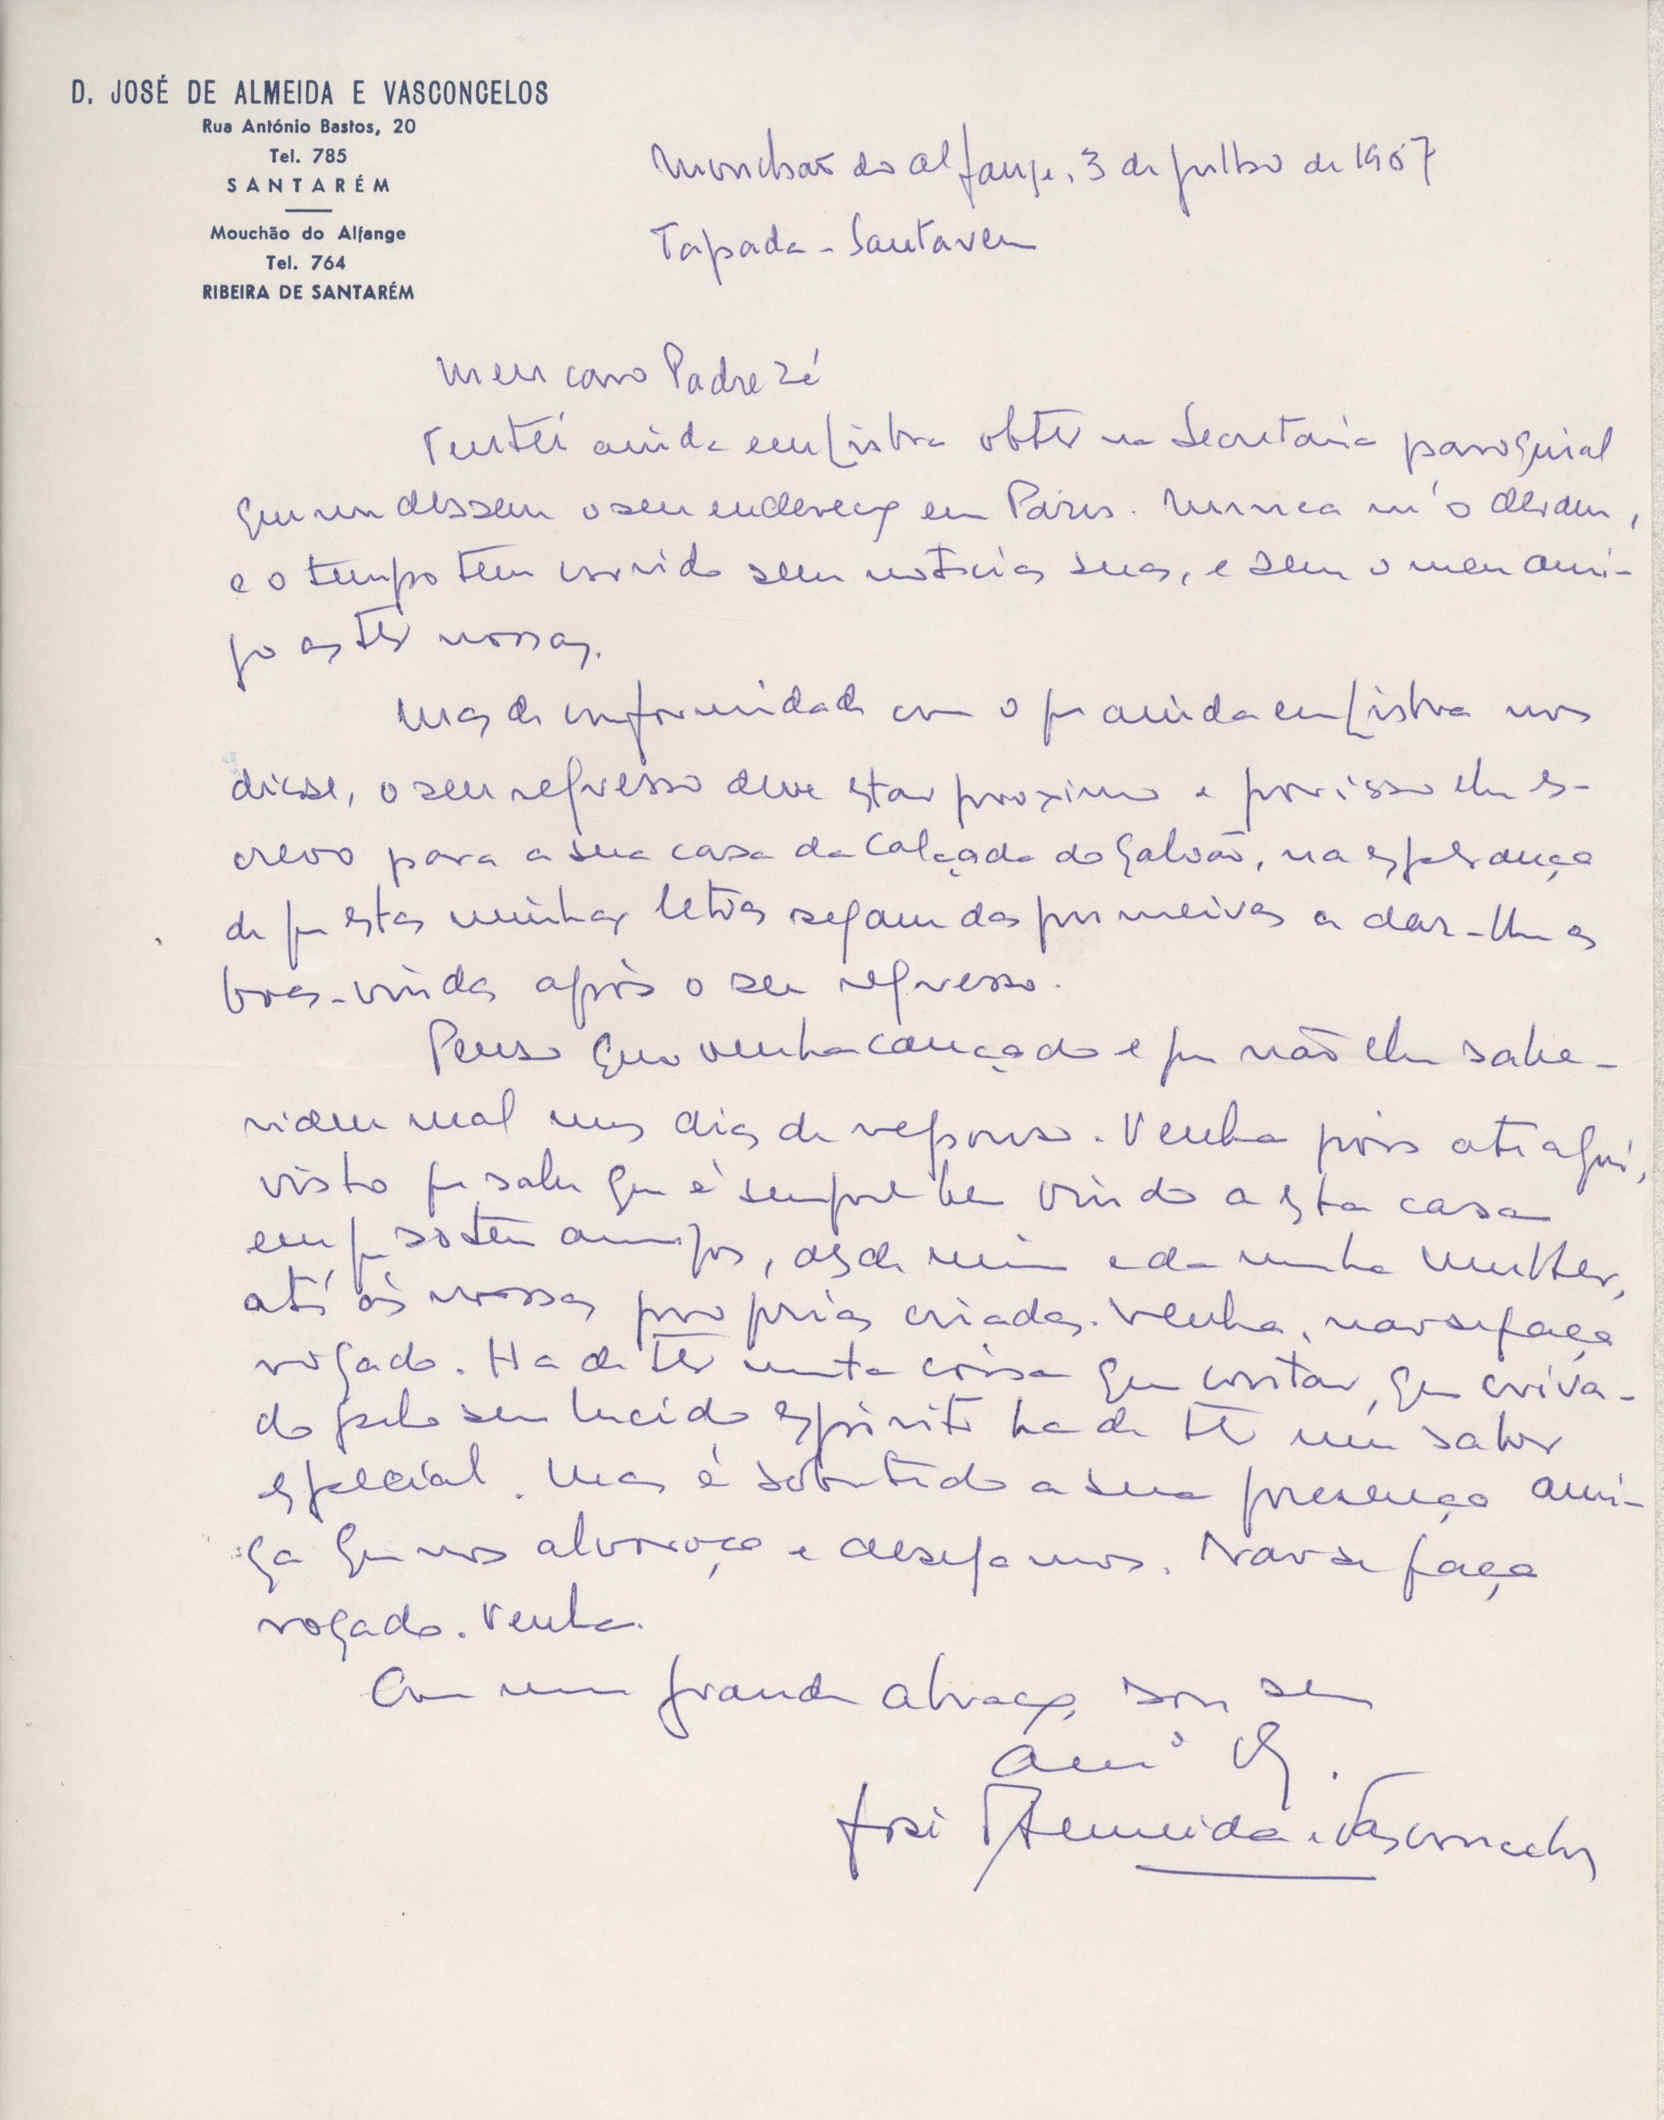 D. JOSÉ DE ALMEIDA E VASCONCELOS
Rua António Bastos, 20
Tel. 785
SANTARÉM
Mouchão do Alfange
Tel. 764
RIBEIRA DE SANTARÉM
Mouchão do Alfange, 3 de julho de 1967
Tapada - Santarem
Meu caro Padre Zé
Tentei ainda em Lisboa obter na Secretaria paroquial
que me dessem o seu endereço em Paris. Nunca m'o deram,
e o tempo tem corrido sem noticias suas, e sem o meu ami-
go as ter nossas.
Mas de conformidade com o que ainda em Lisboa nos
disse, o seu regresso deve estar proximo e por isso lhe es-
crevo para a sua casa da Calçada do Galvão, na esperança
de que estas minhas letras sejam das primeiras a dar-lhe as
boas-vindas após o seu regresso.
Penso que venha cançado e que não lhe sabe-
riam mal uns dias de repouso. Venha pois até aqui,
visto que sabe que é sempre bem vindo a esta casa
em que só tem amigos, desde mim e da minha mulher,
até ás nossas proprias criadas. Venha, não se faça
rogado. Ha de ter muita coisa que contar, que criva-
do pelo seu lucido espirito ha de ter um sabor
especial. Mas é sobretudo a sua presença ami-
ga que nos alvoroça e desejamos. Não se faça
rogado. Venha.
Com um grande abraço, sou seu
amº
José Almeida e Vasconcelos